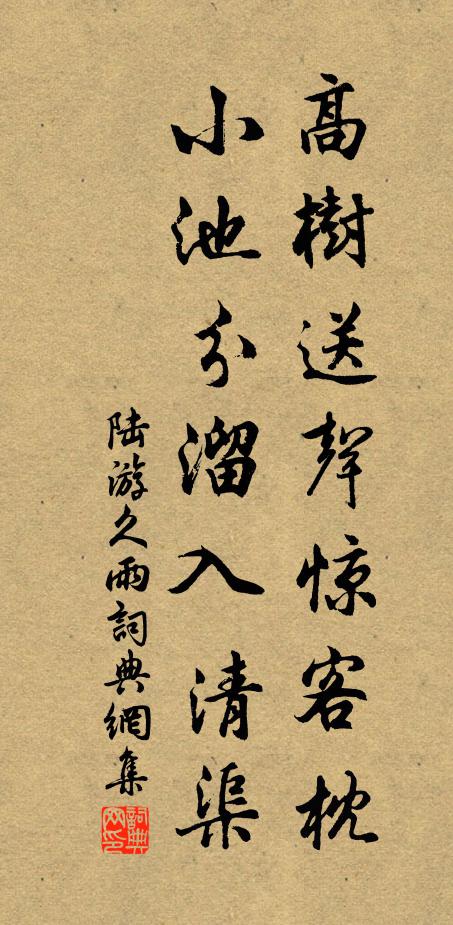 高樹送聲惊客枕
小池分溜入清渠
陆游久雨詞典網集
詞典网印